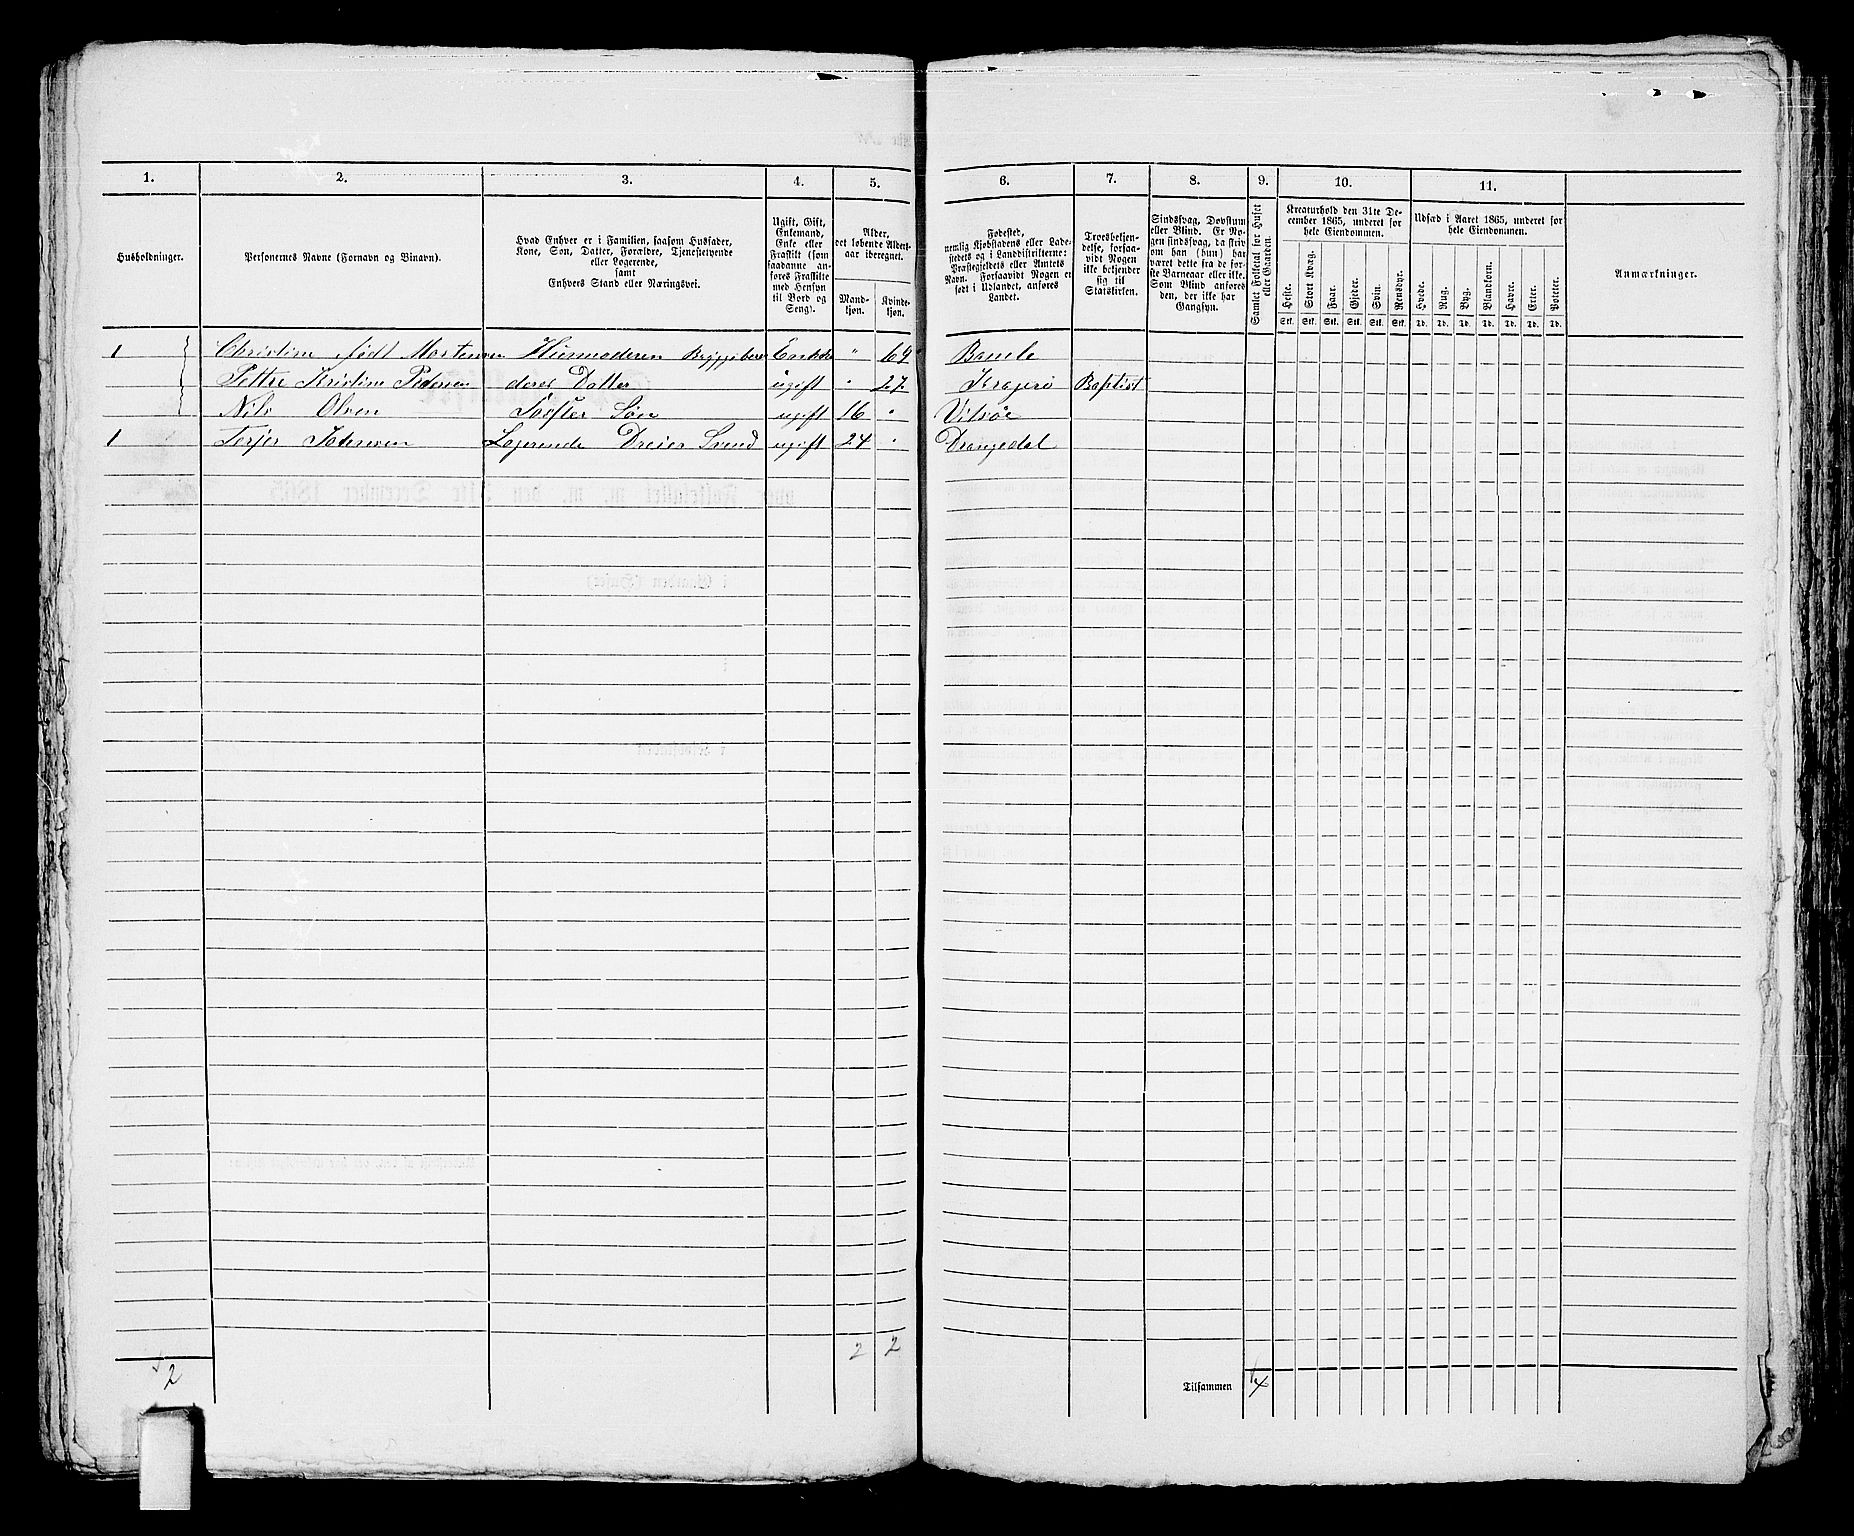 1. 2. 3. 4. 5. 6. 7. 8. 9. 10. 11.
Husholdninger.
Personernes Navne (Fornavn og Binavn).
Hvad Enhver er i Familien, saasom Husfader,
Kone, Søn, Datter, Forældre, Tjenestetyende
eller Logerende,
samt
Enhvers Stand eller Næringsvei.
Ugift, Gift,
Enkemand,
Enke eller
Fraskilt (som
saadanne an-
føres Fraskilte
med Hensyn
til Bord og
Seng).
Alder,
det løbende Alders-
aar iberegnet.
Mand-
kjøn.
Kvinde-
kjøn.
Fødested,
nemlig Kjøbstadens eller Lade-
stedets og i Landdistrikterne:
Præstegjeldets eller Annexets
Navn. Forsaavidt Nogen er
født i Udlandet, anføres
Landet.
Troesbekjen-
delse, forsaa-
vidt Nogen
ikke bekjender
sig til
Statskirken.
Sindssvag, Døvstum
eller Blind. Er No-
gen sindssvag, da skriv
om han (hun) har
været dette fra de før-
ste Barneaar eller ikke.
Som Blind anføres
den, der ikke har
Gangsyn.
Samlet Folketal for Huset
eller Gaarden.
Kreaturhold den 31te De-
cember 1865, underet for
hele Eiendommen.
Heste. Stort Kvæg. Faar. Gjeder. Svin. Rensdyr.
Stk. Stk. Stk. Stk. Stk. Stk.
Udsæd i Aaret 1865, underet for
hele Eiendommen.
Hvede. Rug. Byg. Blandkorn. Havre. Erter. Poteter.
Td. Td. Td. Td. Td. Td. Td.
Anmærkninger.
1 Christine født Mortensen Husmoderen Enke " 64 Bamle
Kristine Pedersen deres Datter ugift " 27 Kragerø Baptist
Nils Olsen Søster Søn ugift 16 "
1 Terjer Logerende Dreier Svend ugift 24 " Drangedal
2 2 2
Tilsammen 4